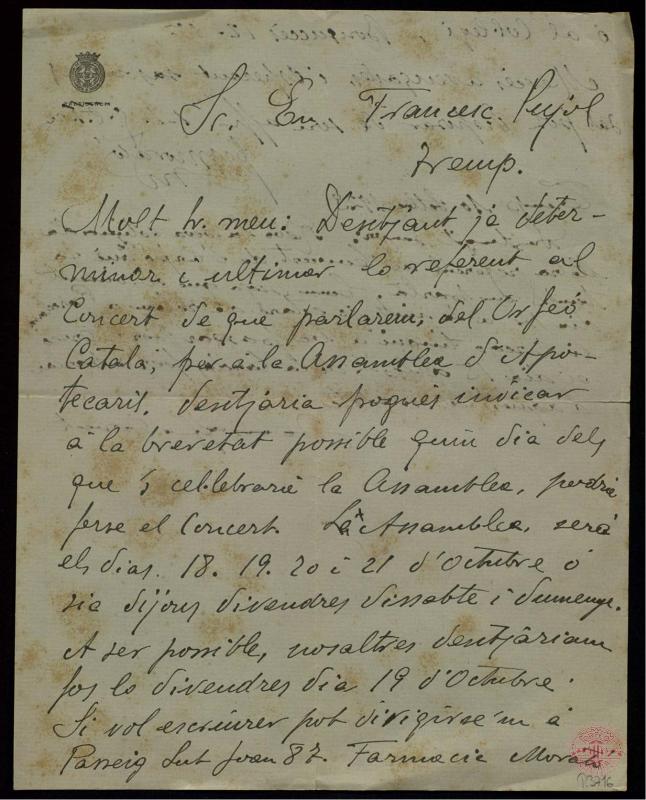 Sr. En Francesc Pujol
Tremp.
Molt Sr. meu: Desitjant ja deter-
minar i ultimar lo referent al
Concert de que parlarem, del Orfeó
Català, per a la Assamblea d'Apo-
tecaris, desitjaria pogués indicar
a la brevetat possible quin dia dels
que s celebrarie la Assamblea, podria
ferse el Concert. La Assamblea, será
els dias. 18. 19. 20 i 21 d'Octubre ó
sia dijous divendres dissabte i diumenge.
A ser possible, nosaltres desitjàriam
fos lo divendres dia 19 d'Octubre.
Si vol escriurer pot dirigirse'm à
Passeig Sut Joan 87. Farmacia